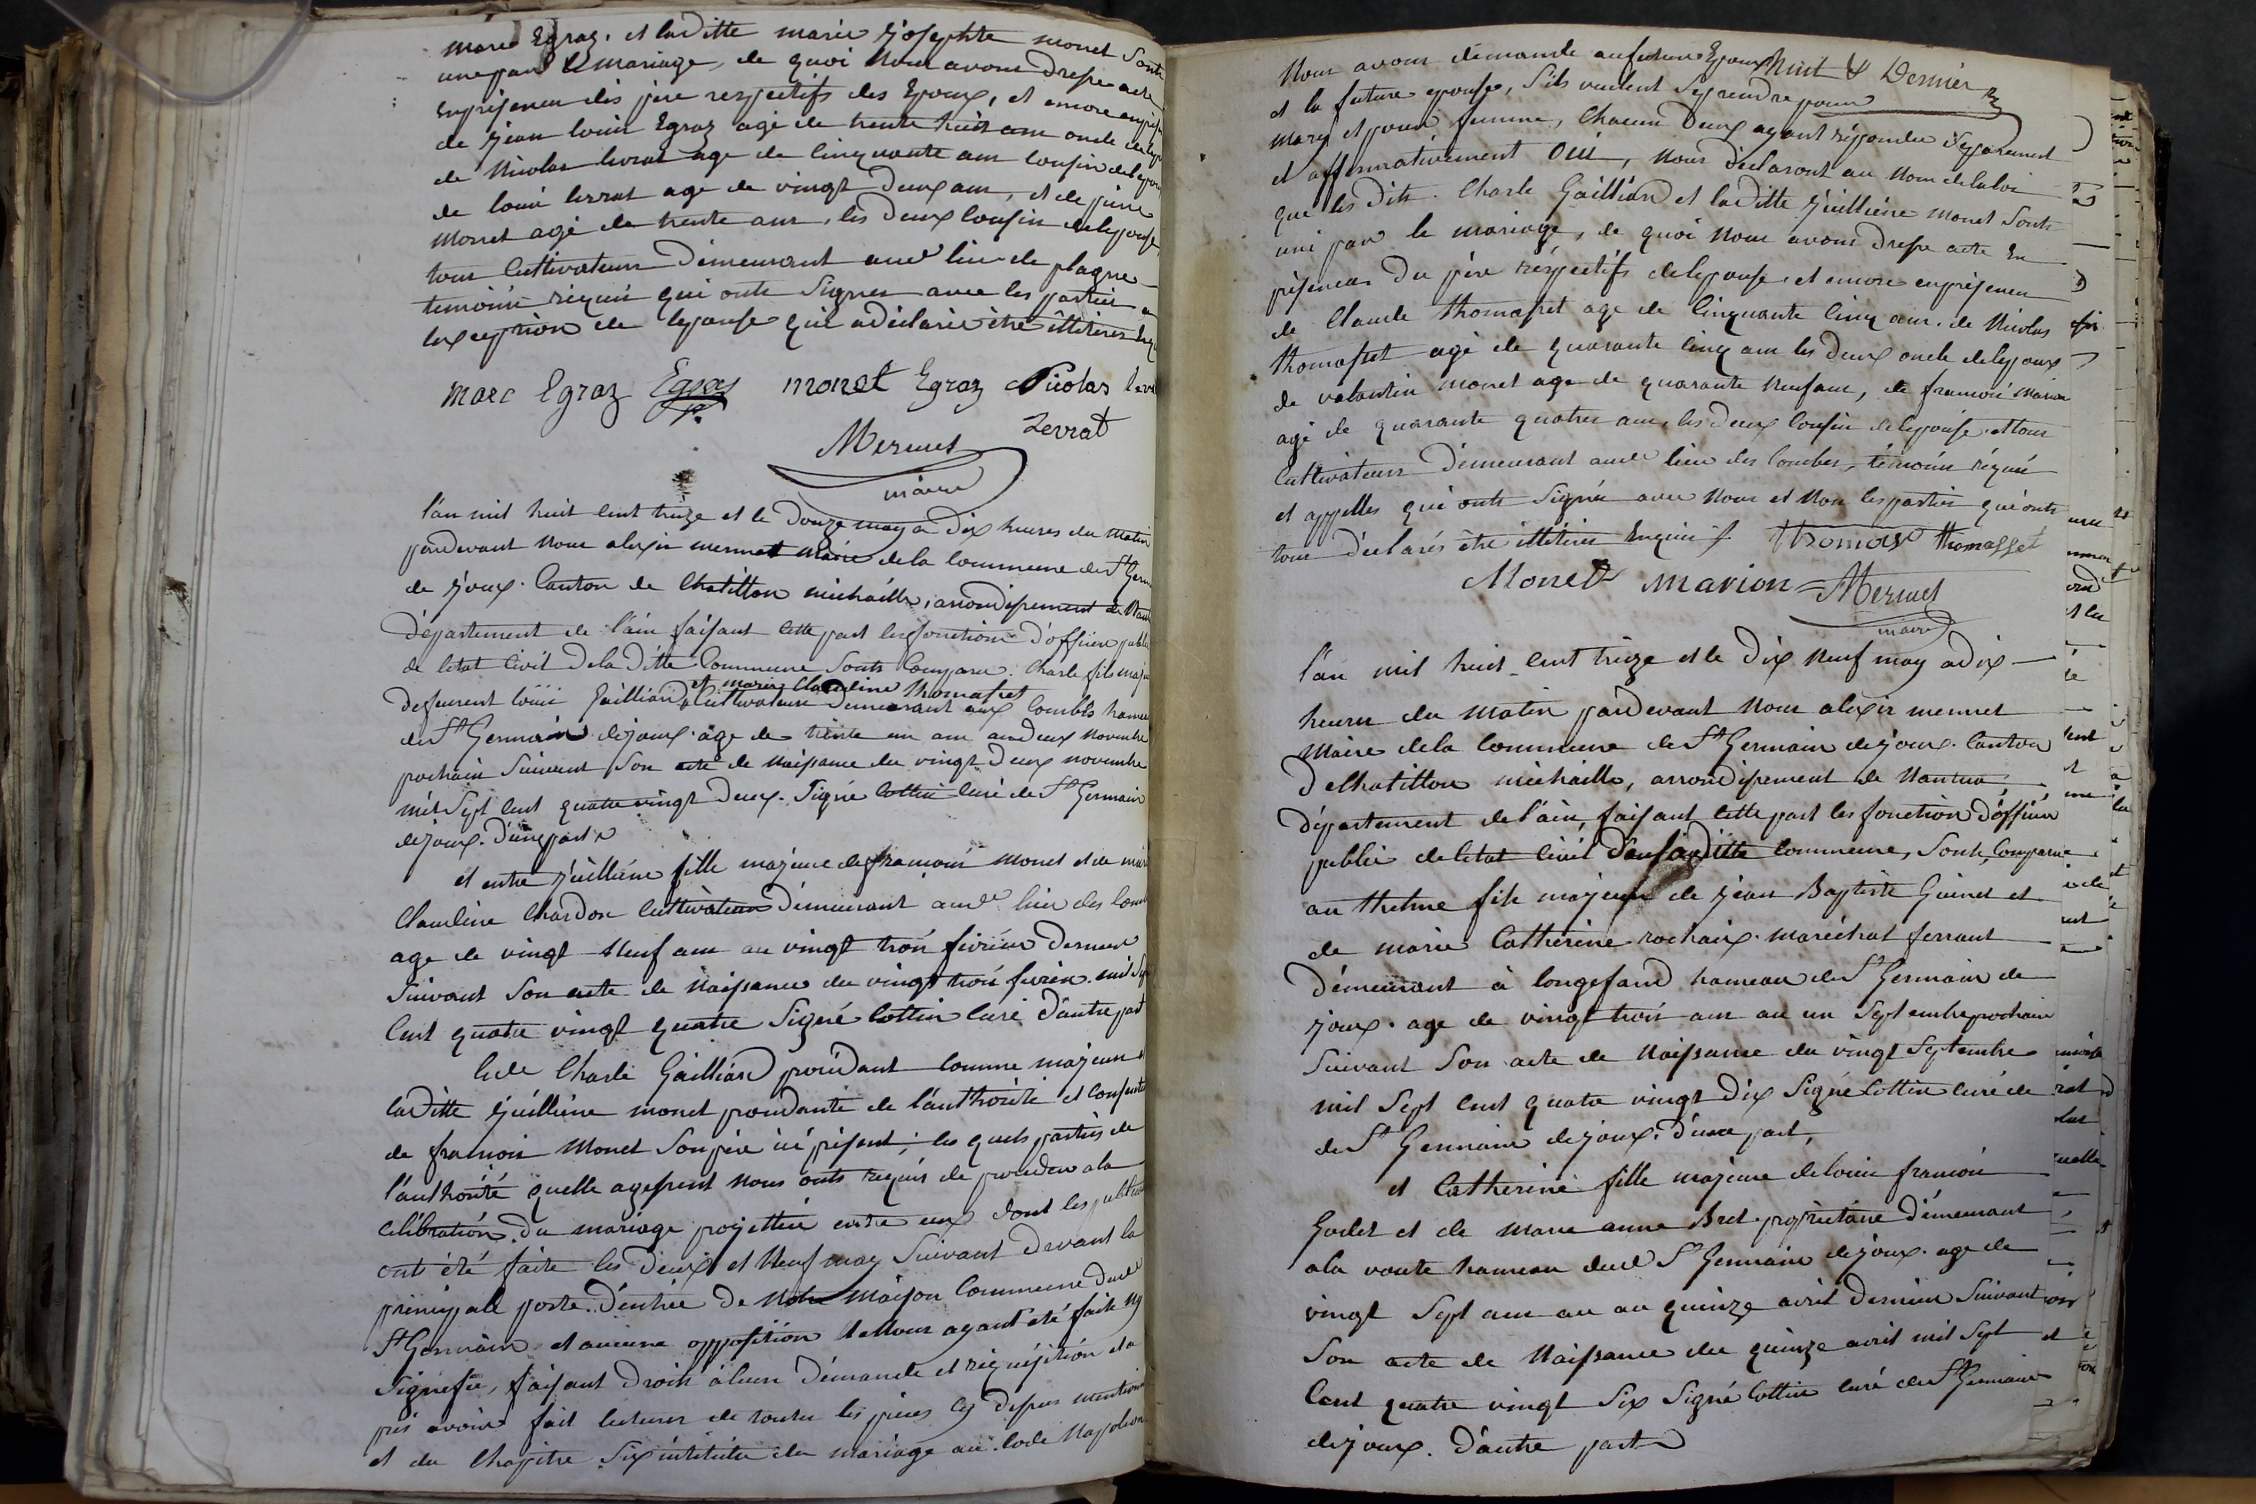 marc Egraz. et laditte marie josephte monet sont
uni par le mariage, de quoi nous avons dressé acte
en présence des père respectifs des Epoux, et encore en prés
de jean louis Egraz agé de trente huit ans oncle de lep
de Nicolas levrat age de cinquante ans cousin de lepou
de louis levrat age de vingt deux ans, et de pierre
monet agé de trente ans, les deux cousin de lepouse
tous cultivateurs demeurant aud lieu de plagne
temoins requis qui onts signés avec les parties a
lexception de lepouse qui a déclarée être illitérée
marc Egraz Egraz monet Egraz Nicolas levr
Levrat
Mermet
maire
l'an mil huit cent treize et le douze may a dix heures du matin
pardevant nous alexis mermet maire de la commune de St Germ
de joux. Canton de Chatillon michaille, arrondissement de Nant
département de l'ain faisant cette part les fonctions d'officier publi
de letat civil de la ditte commune sonts comparu. Charle fils maj
et marie Claudine thomasset
defeurent louis Gaillard cultivateur demeurant aux combes hameau
de St Germain dejoux. agé de trente un ans au deux novembre
prochain suivant son acte de naissance du vingt deux novembre
mil sept cent quatre vingt deux. Signé Cottin curé de St Germain
dejoux. d'une part
et entre jullienne fille majeure de francois monet et de marie
Claudine Chardon cultivateur demeurant aud lieu des com
age de vingt neuf ans au vingt trois fevrier dernier
suivant son acte de naissance du vingt trois fevrier mil sep
cent quatre vingt quatre signé Cottin curé d'autre part
Lede Charle Gaillard procédant comme majeur et
laditte jullienne monet procédante de l'authorité et consente
de francois monet son père ici présent; les quels parties de
l'authorité quelle agessent nous onts requis de procéder a la
célébration du mariage projettée entre eux dont les publi
onts été faite les deux et neuf may suivant devant la
principalle porte d'entrée de notre maison commune dud
St Germain et aucune opposition ayant été faite ny
signefié, faisant droit à leur demande et réquisition et a
près avoir fait lectures de toutes les pièces cy dessus mention
et du chapitre six intitulé du mariage au code Napoleon
Nous avons démandé au futur Epoux huit & Dernier
et la future epouse, s'ils veulent se prendre pour
mary et pour femme, chacun deux ayant répondu séparement
et affirmativement oui, nous déclaront au nom de la loi
que les dits. Charle Gaillard et laditte jullienne monet sonts
uni par le mariage, de quoi nous avons dressé acte en
présence du père réspectifs de lepouse et encore en présence
de Claude thomasset age de cinquante cinq ans. de Nicolas
thomasset agé de quarante cinq ans les deux oncle de lepoux
de valentin monet age de quarante neuf ans, de francois marion
agé de quarante quatres ans, les deux cousin de lepouse et tous
cultivateurs demeurant aud lieu des combes, témoins réquis
et appellés qui onts signés avec nous et non les parties qui onts
tous déclarés être illitérés enquis thomasset thomasset
Monet marion Mermet
maire
l'an mil huit cent treize et le dix neuf may a dix
heures du matin pardevant nous alexis mermet
maire de la commune de St Germain dejoux. Canton
de Chatillon michaille, arrondissement de Nantua,
département de l'ain, faisant cette part les fonction d'officier
public de letat civil de la ditte commune, sonts comparu
anthelme fils majeur de jean Baptiste Guinet et
de marie Catherine rochaix. maréchal ferrant
démeurant à longefand hameau de St Germain de
joux. age de vingt trois ans au un septembre prochain
suivant son acte de naissance du vingt septembre
mil sept cent quatre vingt dix signé Cottin curé de
de St Germain dejoux. d'une part,
et Catherine fille majeure de louis francois
Godet et de marie anne Bret proprietaire démeurant
a la voute hameau dud St Germain dejoux. age de
vingt sept ans au au quinze avril dernier suivant
son acte de naissance du quinze avril mil sept
cent quatre vingt six signé Cottin curé de St Germain
dejoux. d'autre part